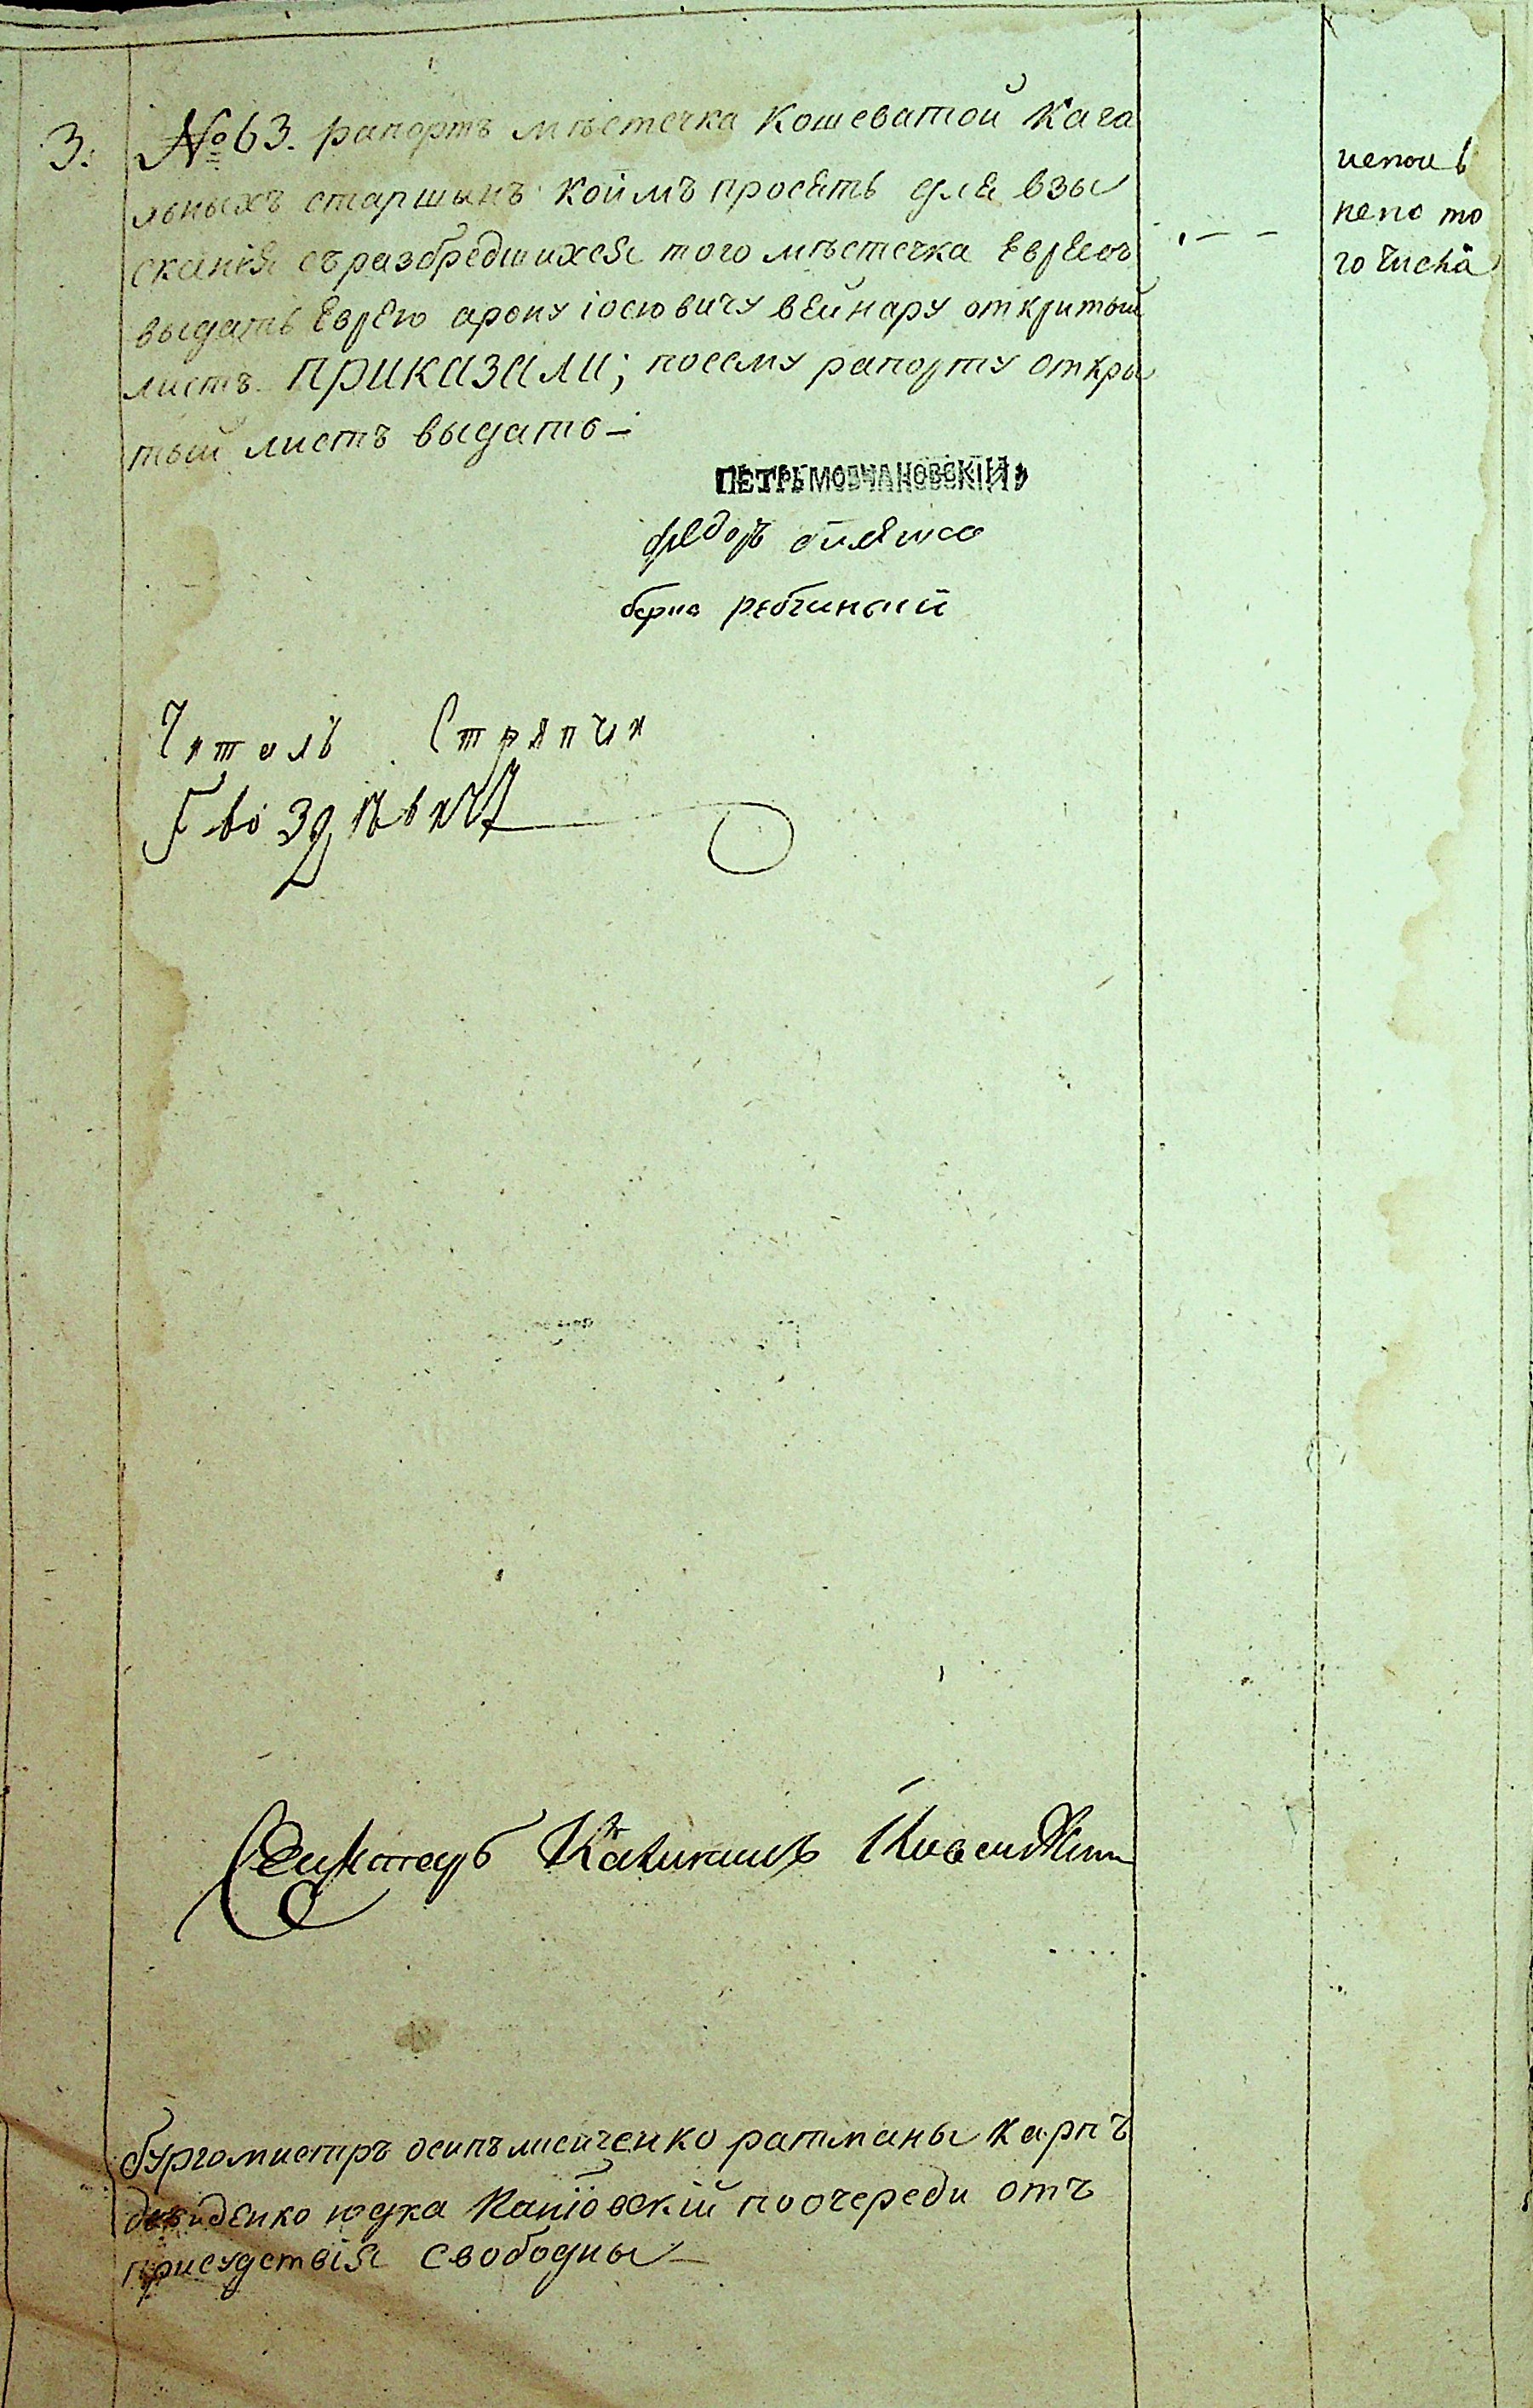 3. №63. рапортъ мѣстечка Кошеватой Кага
льныхъ старшынъ коимъ просятъ для взы
сканія съ разбредшихся того мѣстечка Евреевъ
выдать Еврею арону іосювичу вейнару открытый
листъ. ПРИКАЗАЛИ; посему рапорту откры
тый листъ выдать
исполь
нено то
го числа
ПЕТРЪ МОВЧАНОВСКІЙ
федоръ
берко ребчинскій
Читалъ Стряпчи
Гвоздѣвичъ
Секретарь
бургомистръ осипъ лисиченко ратманы Карпъ
давиденко юдка Каніовскій поочереди отъ
присудствія свободны